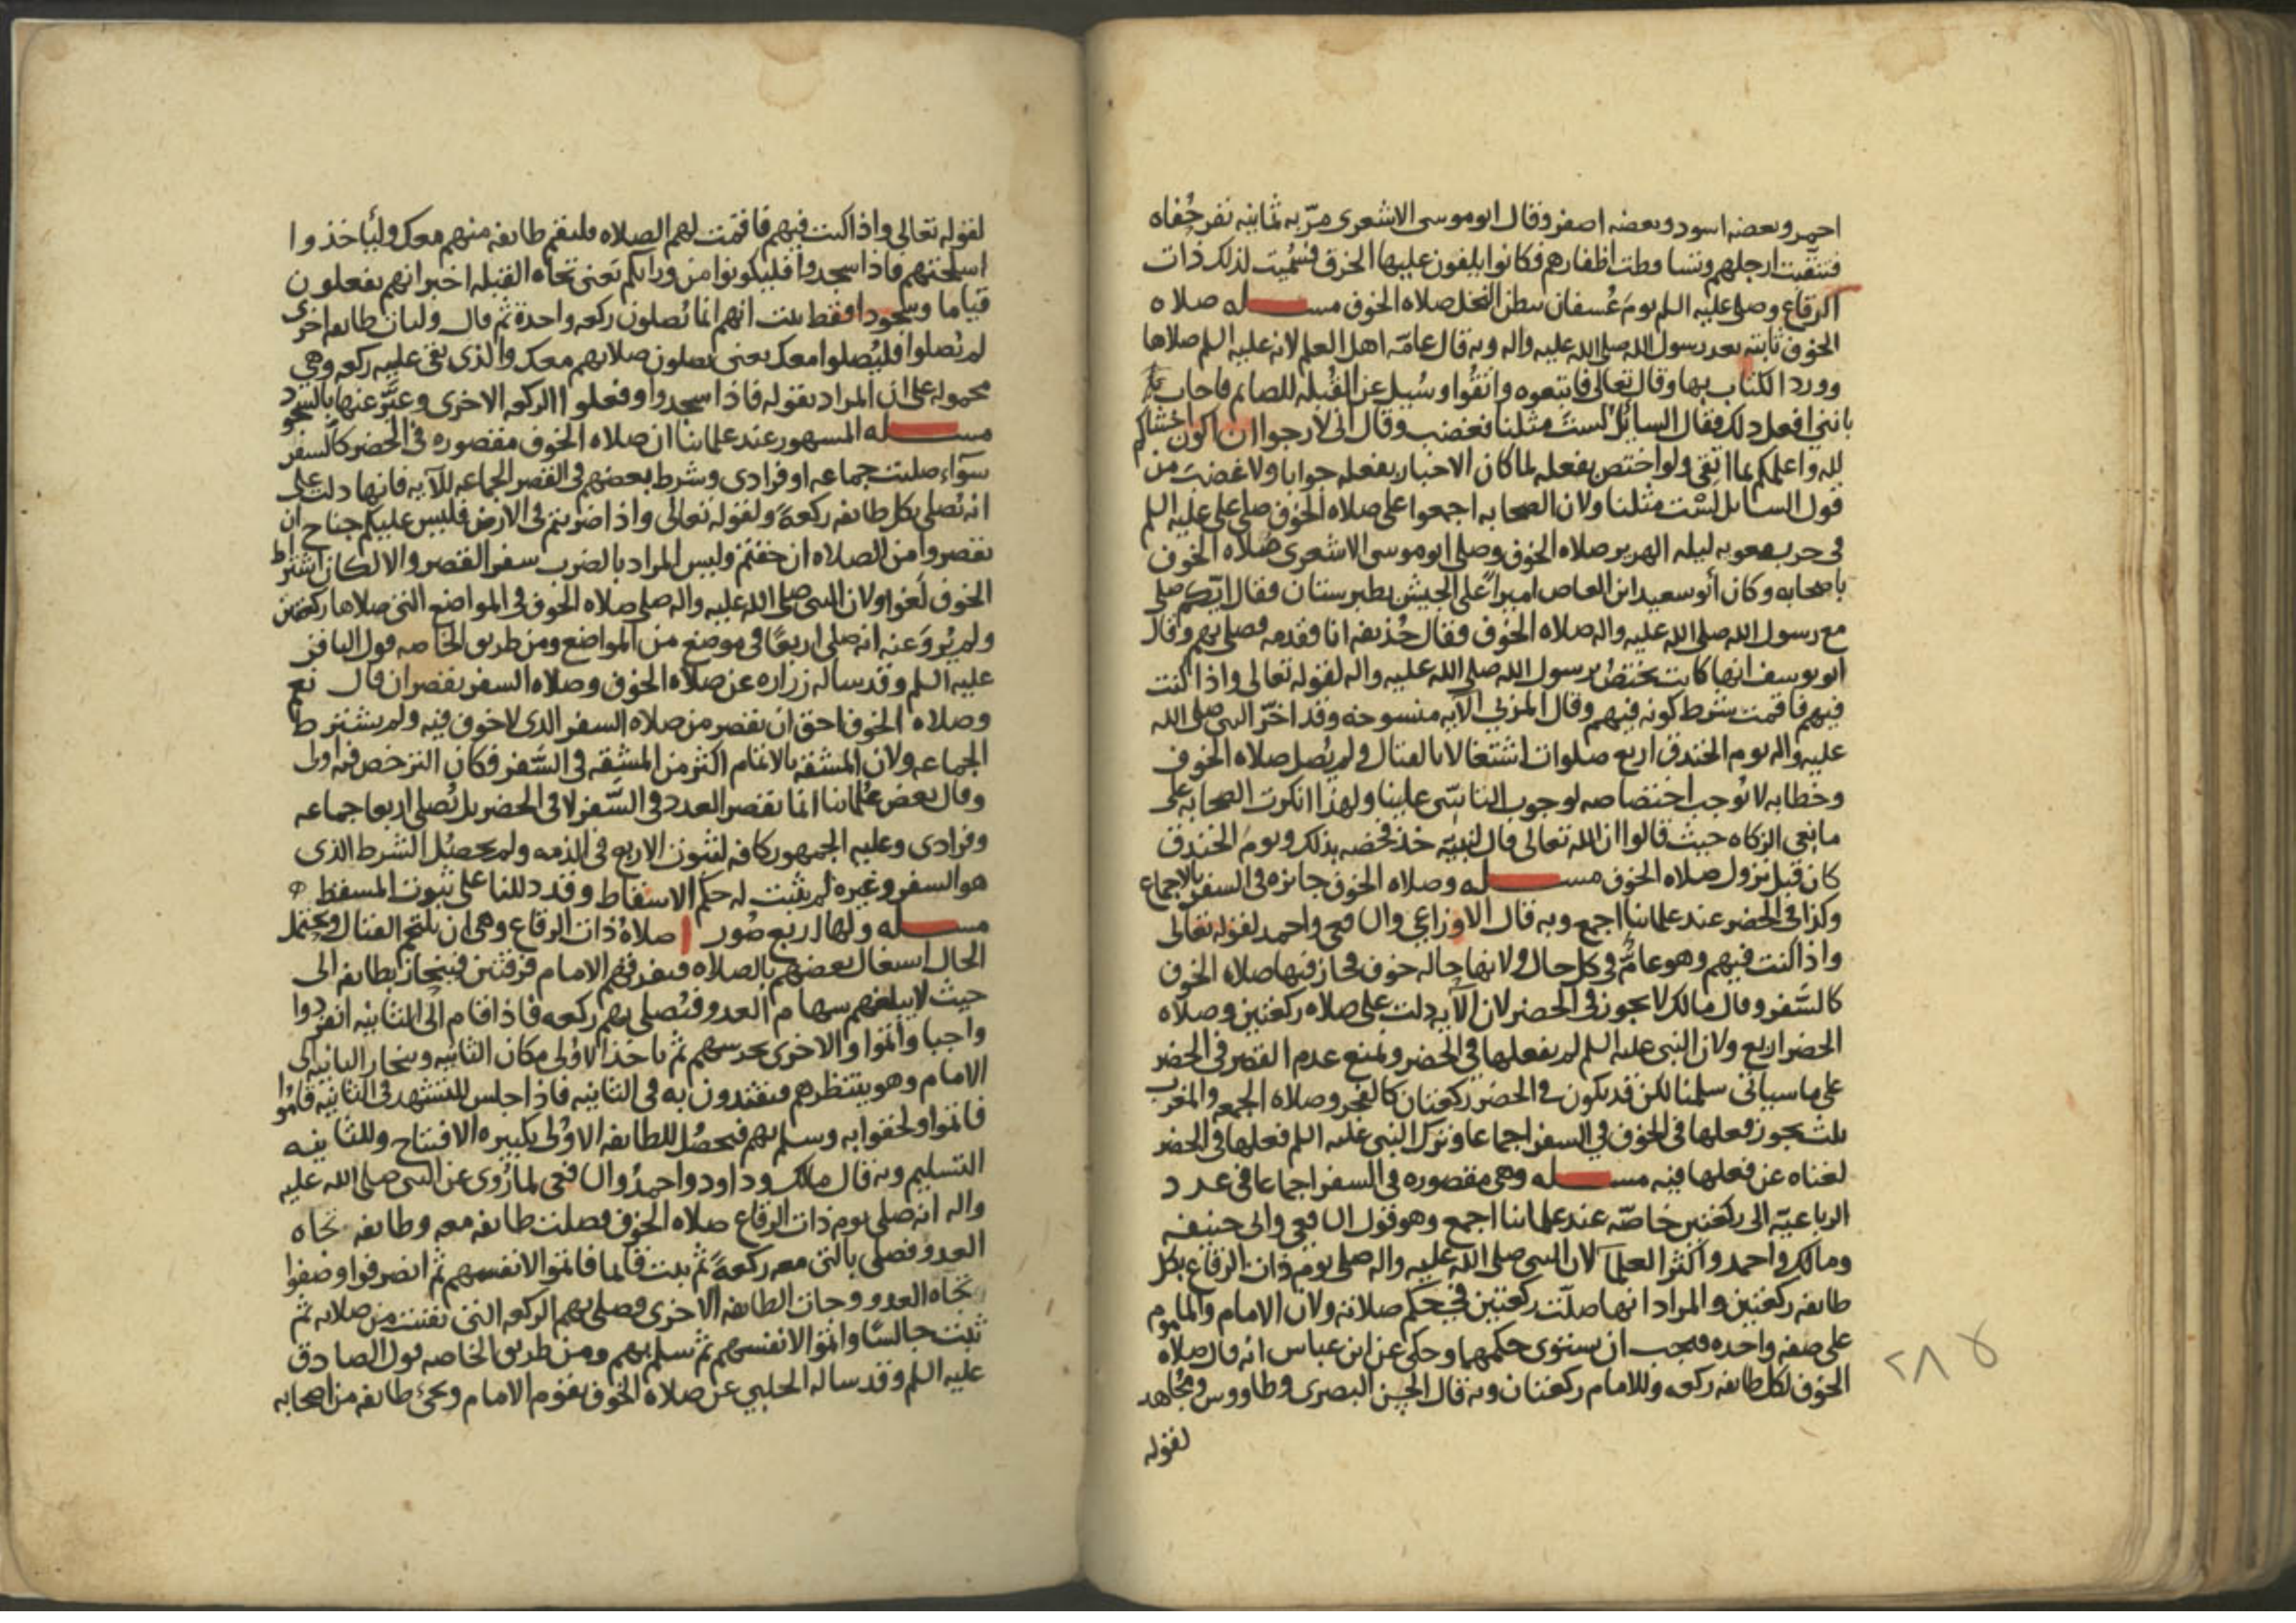 احمر وبعضه اسود وبعضه اصفر وقال ابو موسى الاشعرى مرّ به ثمانيه نفر حُفاه
فنقبت ارجلهم وتساقطت اظفارهم فكانوا يلفون عليها الخرق فسُميت لذلك ذات
الرقاع وصلى عليه السلم يوم عُسفان ببطن النخل صلاه الخوف مسـله صلاه
الخوف ثابته بعد رسول الله صلى الله عليه واله وبه قال عامّه اهل العلم لانه عليه السلم صلاها
وورد الكتاب بها وقال تعالى فاتبعوه واتقُوا وسُيل عن القُبله للصايم فاجاب
بانني افعل ذلك فقال السايل لستَ مثلنا فغضب وقال انى لارجوا ان اكون اخشاكم
لله واعلمكم بما اتقى ولو اختص بفعله لما كان الاخبار بفعله جوابا ولا غضبَ من
قول السايل لسْت مثلنا ولان الصحابه اجمعوا على صلاه الخوف صلى على عليه السلم
فى حرب معويه ليله الهرير صلاه الخوف وصلى ابو موسى الاشعرى صلاه الخوف
باصحابه وكان أبو سعيد ابن العاص اميراً على الجيش بطبرستان فقال ايّكم صلى
مع رسول الله صلى الله عليه واله صلاه الخوف فقال حُذيفه انا فقدمه فصلى بهم وقال
ابو يوسف انها كانت تختصُ برسول الله صلى الله عليه واله لقوله تعالى واذا كنت
فيهم فاقمت شرط كونه فيهم وقال المزني الآيه منسوخه وقد اخّر النبى صلى الله
عليه واله يوم الخندق اربع صلوات اشتغالا بالقتال ولم يُصل صلاه الخوف
وخطابه لا تُوجب اختصاصه لوجوب التاسّى علينا ولهذا انكرت الصحابه على
مانعى الزكاه حيث قالوا ان الله تعالى قال لنبيّه خذ فخصه بذلك ويومَ الخندق
كان قبل نزول صلاه الخوف مسـله وصلاه الخوف جايزه فى السفر بالاجماع
وكذا فى الحضر عند علماينا اجمع وبه قال الاوزاعي والشافعى واحمد لقوله تعالى
واذا كنت فيهم وهو عامٌّ فى كل حال ولانها حاله خوف فجاز فيها صلاه الخوف
كالسَّفر وقال مالك لا يجوز فى الحضر لان الآيه دلت على صلاه ركعتين وصلاه
الحضر اربع ولان النبى عليه السلم لم يفعلها فى الحضر ولمنع عدم القصر فى الحضر
على ما سياتى سلمنا لكن قد يكون فى الحضر ركعتان كالفجر وصلاه الجمعه والمغرب
ثلث يجوز فعلها فى الخوف فى السفر اجماعا وترك النبى عليه السلم فعلها فى الحضر
لغناه عن فعلها فيه مسـله وهى مقصوره فى السفر اجماعا فى عدد
الرباعيّه الى ركعتين خاصّه عند علماينا اجمع وهو قول الشافعى وابى حنيفه
ومالك واحمد واكثر العلماَ لان النبى صلى الله عليه واله صلى يوم ذات الرقاع بكل
طايفه ركعتين والمراد انها صلّت ركعتين فى حكم صلاته ولان الامام والماموم
على صفه واحده فيجب ان يستوى حكمهما وحكى عن ابن عباس انه قال صلاه
الخوف لكل طايفه ركعه وللامام ركعتان وبه قال الحسن البصرى وطاووس ومُجاهد
لقوله
٢٨٧
لقوله تعالى واذا كنت فيهم فاقمت لهم الصلاه فلتقم طايفه منهم معك وليأخذوا
اسلحتهم فاذا سجدوا فليكونوا من ورايكم تعنى تجاه القبله اخبر انهم يفعلون
قياما وسجودا فقط بنت انهم انما يُصلون ركعه واحدة ثم قال ولتات طايفه اخرى
لم يُصلوا فليُصلوا معك يعنى يصلون صلاتهم معك والذى بقى عليهم ركعه وهى
محموله على ان المراد بقوله فاذا سجدوا وفعلوا الركعه الاخرى وعبَّر عنها بالسجود
مسـله المسهور عند علماينا ان صلاه الخوف مقصوره فى الحضر كالسفر
سوآء صليت جماعه او فرادى وشرط بعضهم فى القصر الجماعه للآيه فانها دلت على
انه يُصلى بكل طايفه ركعهً ولقوله تعالى واذا ضربتم فى الارض فليس عليكم جناح ان
تقصروا من الصلاه ان خفتم وليس المراد بالضرب سفر القصر والا لكان اشتراط
الخوف لَغوا ولان النبى صلى الله عليه واله صلى صلاه الخوف فى المواضع التى صلاها ركعتين
ولم يُروَ عنه انه صلى اربعًا فى موضع من المواضع ومن طريق الخاصه قول الباقر
عليه السلم وقد ساله زراره عن صلاه الخوف وصلاه السفر تقصران قال نعم
وصلاه الخوف احق ان تقصر من صلاه السفر الذى لا خوف فيه ولم يشترط
الجماعه ولان المشقه بالاتمام اكثر من المشقه فى السَّفر فكان الترخص فيه اولى
وقال بعض عُلماينا انما تقصر العدد فى السَّفر لا فى الحضر بل يُصلى اربعا جماعه
وفرادى وعليه الجمهور كافه لثبوت الاربع فى الذمه ولم يحصُل الشرط الذى
هو السفر وغيره لم يثبت له حكم الاسقاط وقد دللنا على ثبوت المسقط
مسـله ولها اربع صُور ا صلاهُ ذات الرقاع وهى ان يلتحم القتال ويحتمل
الحال اشتغال بعضهم بالصلاه فيفرقهم الامام فرقتين فينحاز بطايفه الى
حيث لا يبلغهم سهام العدو فيُصلى بهم ركعه فاذا قام الى الثانيه انفردوا
واجبا واتموا والاخرى تحرسهم ثم ياخذ الاولى مكان الثانيه وينحاز الثانيه الى
الامام وهو ينتظرهم فيقتدون به فى الثانيه فاذا جلس للتشهد فى الثانيه قامُوا
فاتموا ولحقوا به وسلم بهم فيحصُل للطايفه الاولى تكبيره الافتتاح وللثانيه
التسليم وبه قال مالك وداود واحمدُ والشافعى لما رُوى عن النبى صلى الله عليه
واله انه صلى يوم ذات الرقاع صلاه الخوف فصلت طايفه معه وطايفه تجاه
العدو فصلى بالتى معه ركعهً ثم ثبت قايما فاتموا لانفسهم ثم انصرفوا وصفوا
تجاه العدو وجات الطايفه الاخرى وصلى بهم الركعه التى بقيت من صلاته ثم
ثبت جالسًا واتموا لانفسهم ثم سلم بهم ومن طريق الخاصه قول الصادق
عليه السلم وقد ساله الحلبي عن صلاه الخوف يقوم الامام ويجئ طايفه من اصحابه